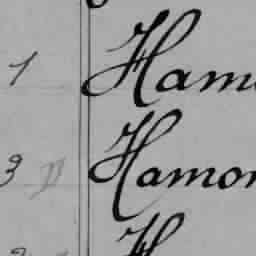 1 Ham
3 Hamon
H